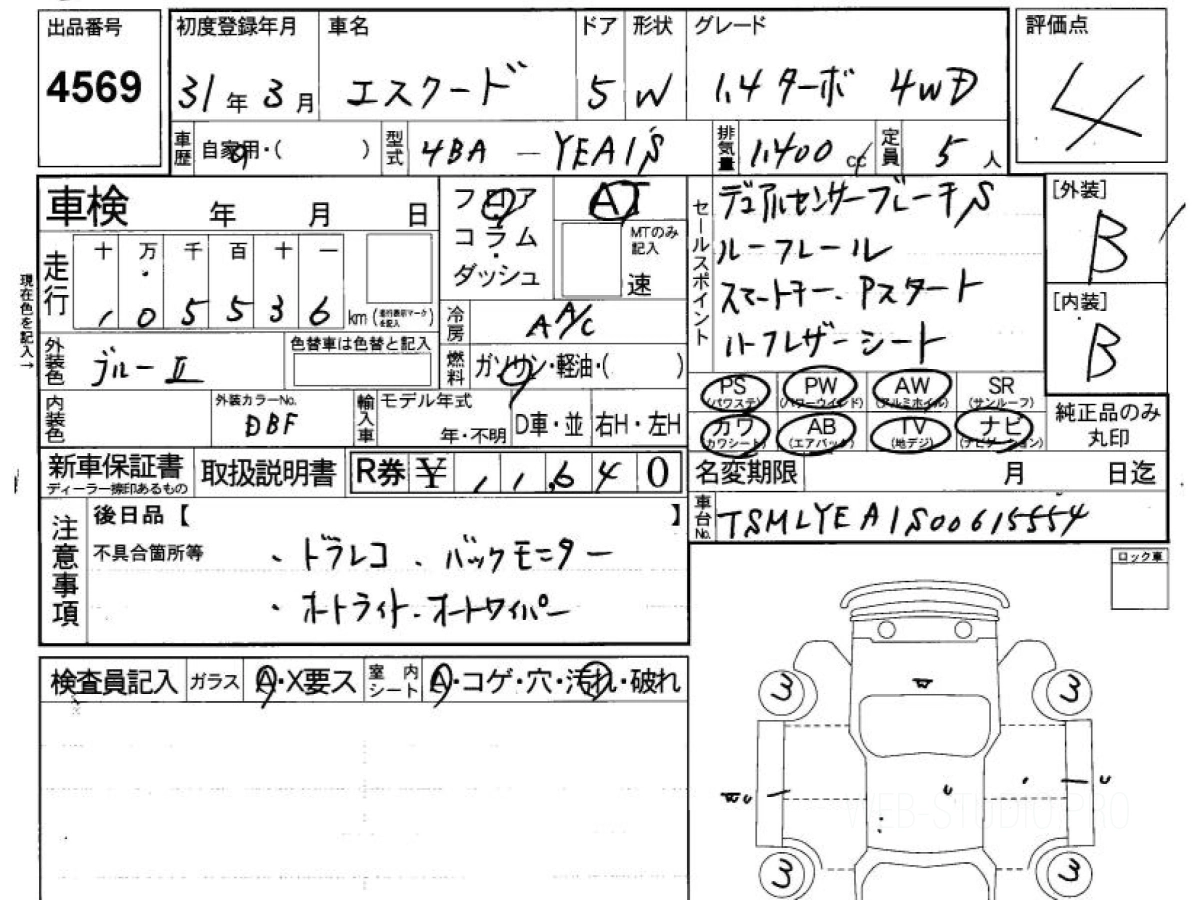 出品番号
4569
初度登録年月 車名 ドア 形状 グレード
31年3月 エスクード 5 W 1.4ターボ 4WD
評価点
4
車歴 自家用・( ) 型式 4BA - YEA1S 排気量 1,400cc 定員 5人
車検 年 月 日
フロア
コラム
ダッシュ
AT
MTのみ記入
速
セールスポイント
デュアルセンサーブレーキS
ルーフレール
スマートキー.Pスタート
ハーフレザーシート
[外装]
B
[内装]
B
現在色を記入→
走行
十 万 千 百 十 一
, 0 5 5 3 6 km (走行表示マークを記入)
冷房 A A/C
燃料 ガソリン・軽油・( )
外装色 ブルーII
色替車は色替と記入
内装色
外装カラーNo.
DBF
輸入車
モデル年式
年・不明
D車・並 右H・左H
PS (パワステ) PW (パワーウインド) AW (アルミホイル) SR (サンルーフ)
カワ (カワシート) AB (エアバック) TV (地デジ) ナビ (ナビゲーション)
純正品のみ丸印
新車保証書
ディーラー捺印あるもの
取扱説明書
R券 ¥ 1 1,6 4 0
名変期限 月 日迄
車台No. TSMLYEA1S00615554
注意事項
後日品【 】
不具合箇所等
・ドラレコ . バックモニター
・オートライト.オートワイパー
ロック車
検査員記入 ガラス A・X要ス 室内シート A・コゲ・穴・汚れ・破れ
3
3
U
U
U
3
3
WEB-STUDIO.PRO